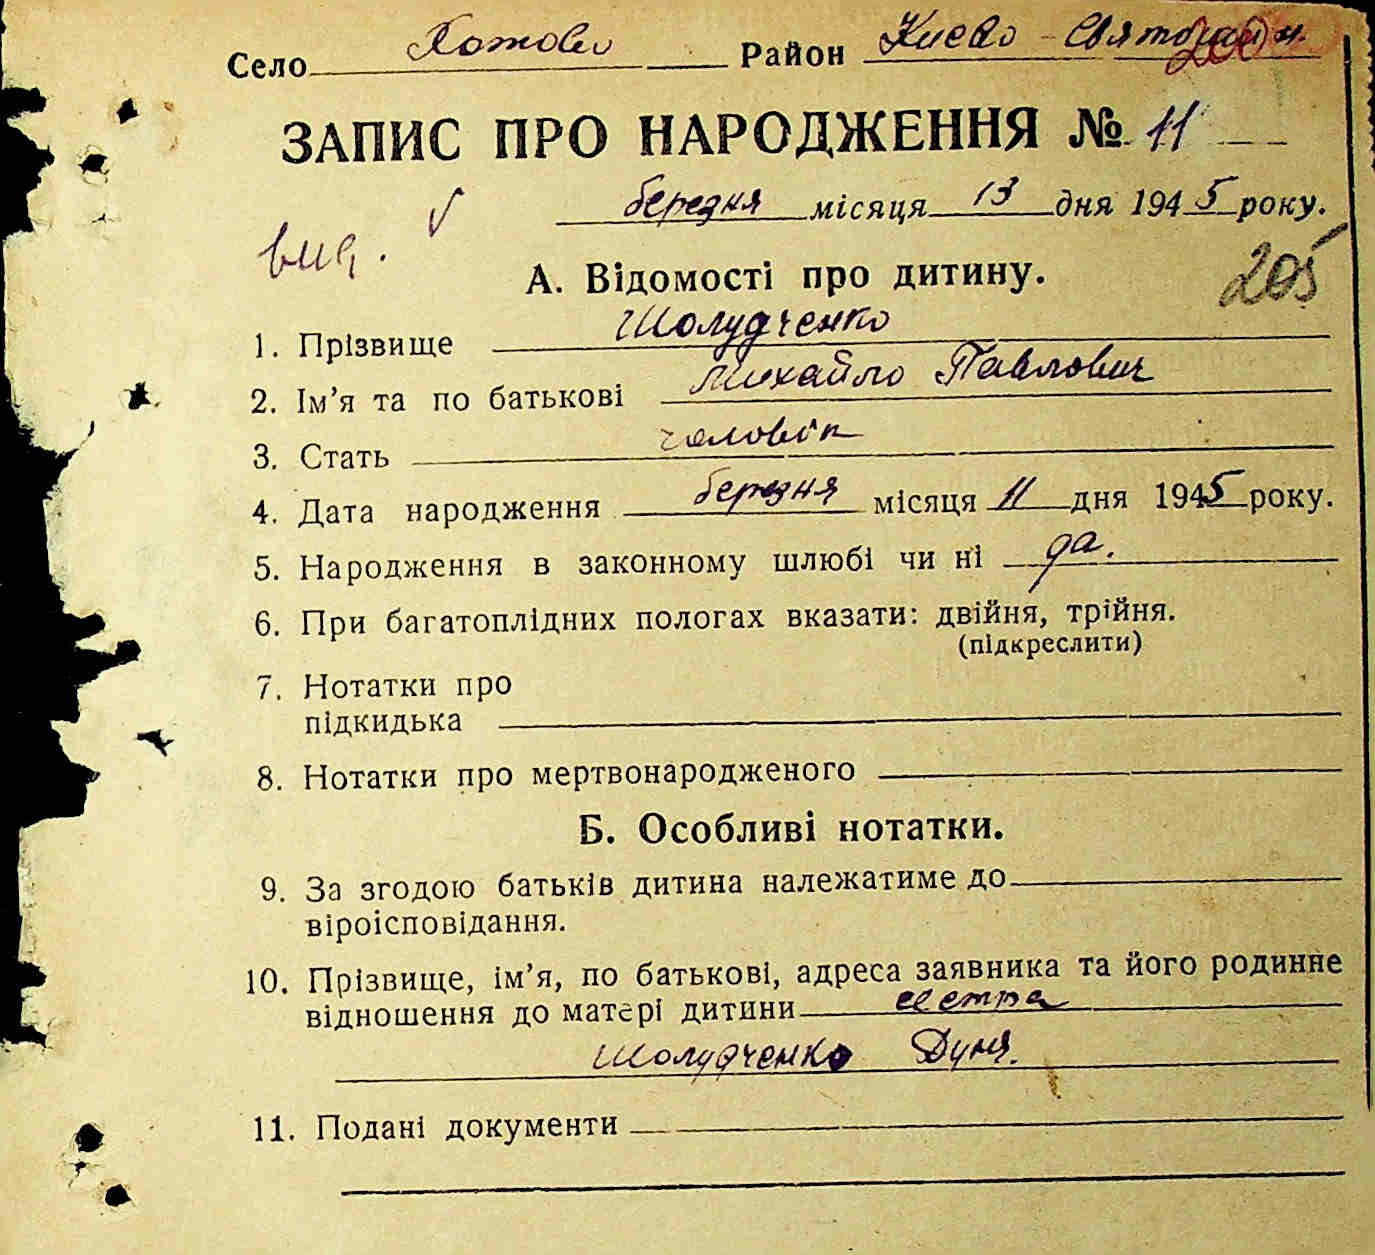 Село Хотово Район Києво-Святошин.
ЗАПИС ПРО НАРОДЖЕННЯ № 11
березня місяця 13 дня 1945 року.
вид.
205
А. Відомості про дитину.
1. Прізвище Шолудченко
2. Ім’я та по батькові Михайло Павлович
3. Стать чоловік
4. Дата народження березня місяця 11 дня 1945 року.
5. Народження в законному шлюбі чи ні да.
6. При багатоплідних пологах вказати: двійня, трійня.
(підкреслити)
7. Нотатки про
підкидька
8. Нотатки про мертвонародженого
Б. Особливі нотатки.
9. За згодою батьків дитина належатиме до
віроісповідання.
10. Прізвище, ім’я, по батькові, адреса заявника та його родинне
відношення до матері дитини сестра
Шолудченко Дуня.
11. Подані документи